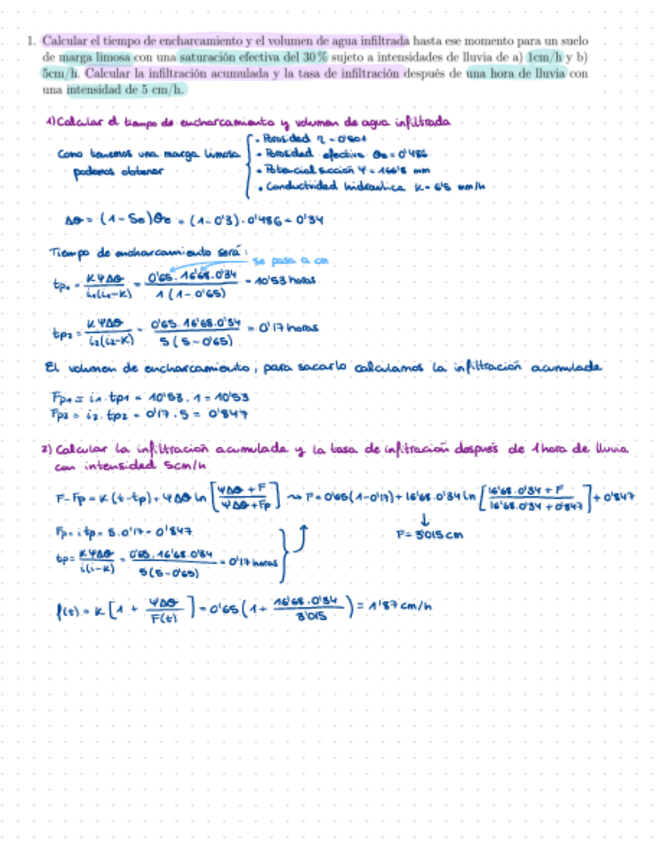 1. Calcular el tiempo de encharcamiento y el volumen de agua infiltrada hasta ese momento para un suelo
de marga limosa con una saturación efectiva del 30 % sujeto a intensidades de lluvia de a) 1cm/h y b)
5cm/h. Calcular la infiltración acumulada y la tasa de infiltración después de una hora de lluvia con
una intensidad de 5 cm/h.
1) Calcular el tiempo de encharcamiento y volumen de agua infiltrada
Como tenemos una marga limosa podemos obtener
• Porosidad η = 0'501
• Porosidad efectiva θe = 0'486
• Potencial succión Ψ = 166'8 mm
• Conductividad hidraulica K = 6'5 mm/h
Δθ = (1 - Se)θe = (1 - 0'3) · 0'486 = 0'34
Tiempo de encharcamiento será:
se pasa a cm
tp1 = KΨΔθ / i1(i1-K) = 0'65 · 16'68 · 0'34 / 1(1-0'65) = 10'53 horas
tp2 = KΨΔθ / i2(i2-K) = 0'65 · 16'68 · 0'34 / 5(5-0'65) = 0'17 horas
El volumen de encharcamiento, para sacarlo calculamos la infiltración acumulada
Fp1 = i1 · tp1 = 10'53 · 1 = 10'53
Fp2 = i2 · tp2 = 0'17 · 5 = 0'847
2) Calcular la infiltración acumulada y la tasa de infitración después de 1 hora de lluvia
con intensidad 5cm/h
F - Fp = K(t - tp) + ΨΔθ ln [ΨΔθ + F / ΨΔθ + Fp] ⇝ F = 0'65(1 - 0'17) + 16'68 · 0'34 ln [16'68 · 0'34 + F / 16'68 · 0'34 + 0'847] + 0'847
Fp = i · tp = 5 · 0'17 = 0'847
↓
F = 3'015 cm
tp = KΨΔθ / i(i-K) = 0'65 · 16'68 · 0'34 / 5(5-0'65) = 0'17 horas
f(t) = K [1 + ΨΔθ / F(t)] = 0'65 (1 + 16'68 · 0'34 / 3'015) = 1'87 cm/h